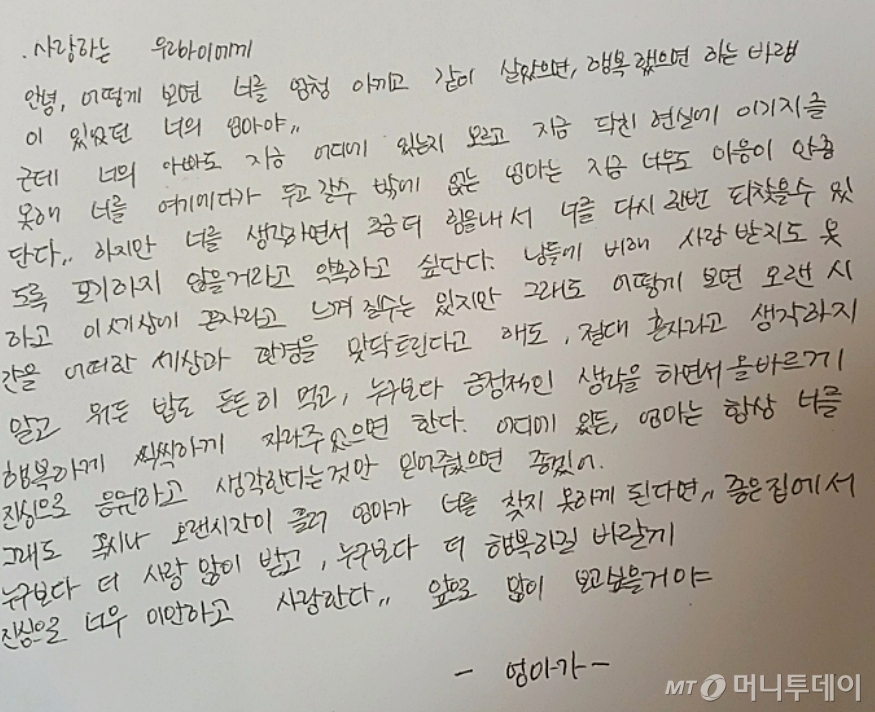 . 사랑하는 우리아이에게
안녕, 어떻게 보면 너를 엄청 아끼고 같이 살았으면, 행복했으면 하는 바램
이 있었던 너의 엄마야,,
근데 너의 아빠도 지금 어디에 있는지 모르고 지금 닥친 현실에 이기지를
못해 너를 여기에다가 두고 갈수 밖에 없는 엄마는 지금 너무도 마음이 안좋
단다,, 하지만 너를 생각하면서 조금 더 힘을내서 너를 다시 한번 되찾을수 있
도록 포기하지 않을거라고 약속하고 싶단다. 남들에 비해 사랑 받지도 못
하고 이 세상에 혼자라고 느껴 질수는 있지만 그래도 어떻게 보면 오랜 시
간을 어떠한 세상과 환경을 맞닥트린다고 해도, 절대 혼자라고 생각하지
말고 뭐든 밥도 든든히 먹고, 누구보다 긍정적인 생각을 하면서 올바르게
행복하게 씩씩하게 자라주었으면 한다. 어디에 있든, 엄마는 항상 너를
진심으로 응원하고 생각한다는것만 믿어줬으면 좋겠어.
그래도 혹시나 오랜시간이 흘러 엄마가 너를 찾지 못하게 된다면,, 좋은집에서
누구보다 더 사랑 많이 받고, 누구보다 더 행복하길 바랄게
진심으로 너무 미안하고 사랑한다,, 앞으로 많이 보고싶을거야
- 엄마가 -
MT 머니투데이